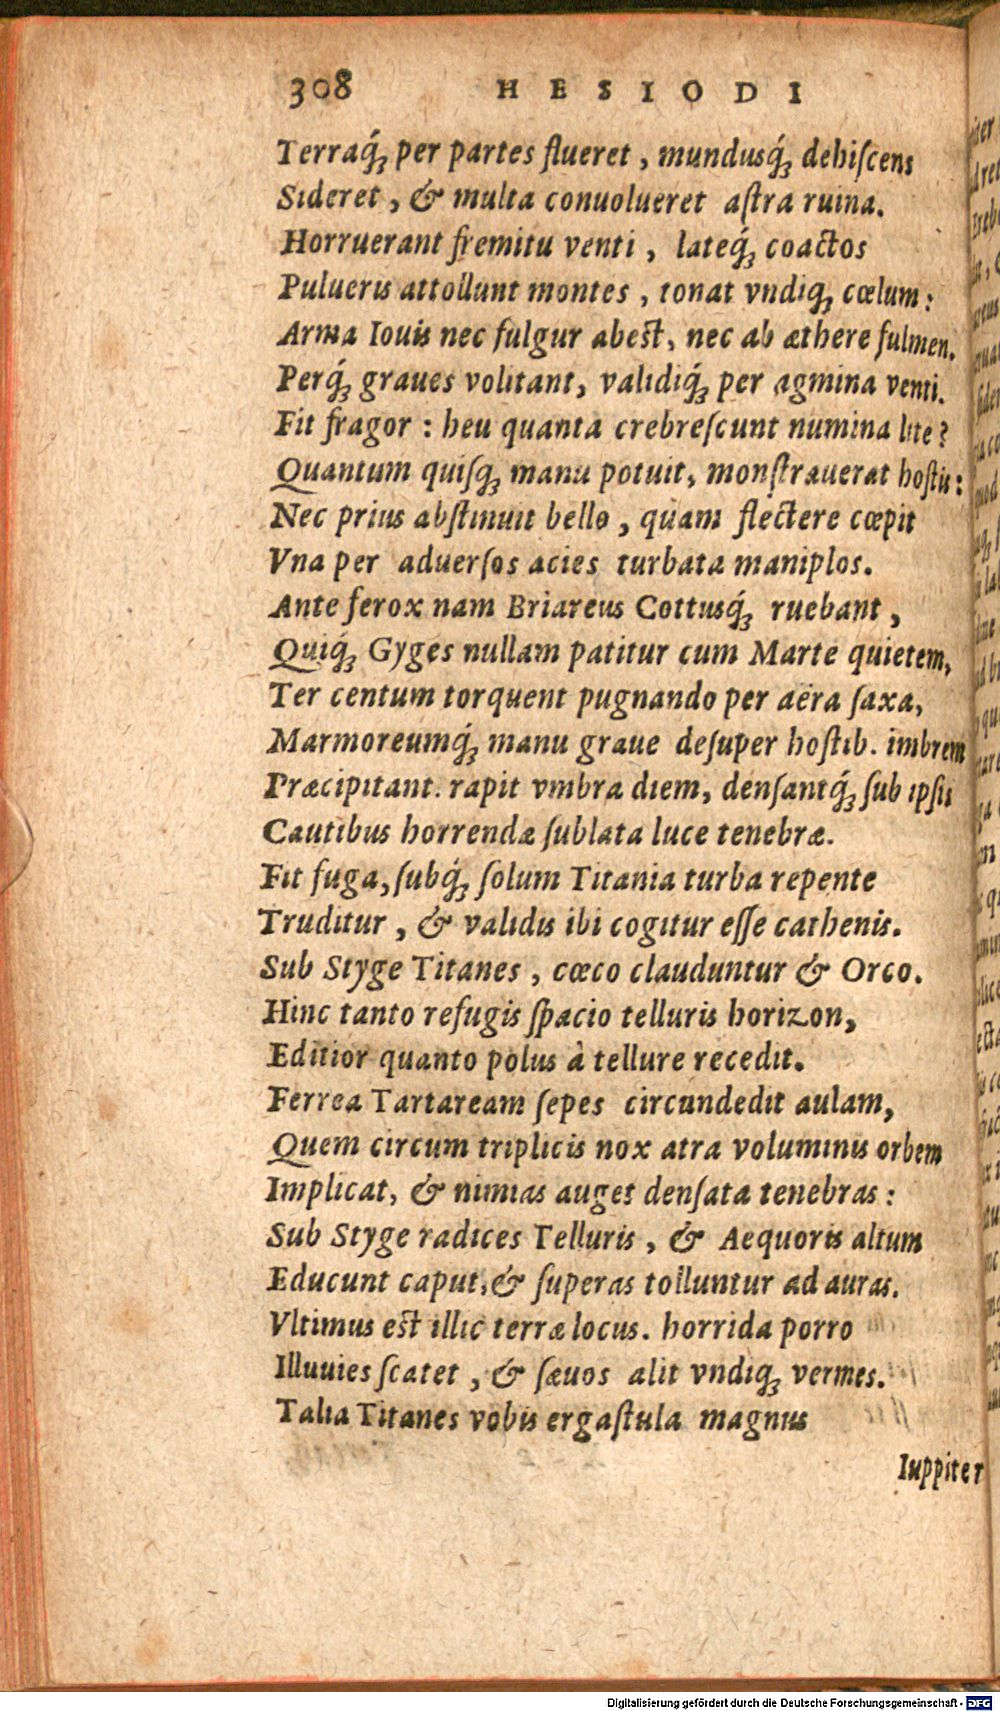 308 HESIODI
Terraq́ꝫ per partes flueret, mundusq́ꝫ dehiſcens
Sideret, & multa conuolueret aſtra ruina.
Horruerant fremitu venti, lateq́ꝫ coactos
Pulueris attollunt montes, tonat vndiqꝫ cœlum:
Arma Iouis nec fulgur abeſt, nec ab æthere fulmen.
Perq́ꝫ graues volitant, validiq́ꝫ per agmina venti.
Fit fragor: heu quanta crebreſcunt numina lite?
Quantum quiſqꝫ manu potuit, monſtrauerat hoſtis:
Nec prius abſtinuit bello, quam flectere cœpit
Vna per aduerſos acies turbata maniplos.
Ante ferox nam Briareus Cottusq́ꝫ ruebant,
Quiq́ꝫ Gyges nullam patitur cum Marte quietem,
Ter centum torquent pugnando per aëra ſaxa,
Marmoreumq́ꝫ manu graue deſuper hoſtib. imbrem
Præcipitant. rapit vmbra diem, denſantq́ꝫ ſub ipſis
Cautibus horrendæ ſublata luce tenebræ.
Fit fuga, ſubq́ꝫ ſolum Titania turba repente
Truditur, & validis ibi cogitur eſſe cathenis.
Sub Styge Titanes, cœco clauduntur & Orco.
Hinc tanto refugis ſpacio telluris horizon,
Editior quanto polus à tellure recedit.
Ferrea Tartaream ſepes circundedit aulam,
Quem circum triplicis nox atra voluminis orbem
Implicat, & nimias auget denſata tenebras:
Sub Styge radices Telluris, & Aequoris altum
Educunt caput, & ſuperas tolluntur ad auras.
Vltimus eſt illic terræ locus. horrida porro
Illuuies ſcatet, & ſæuos alit vndiqꝫ vermes.
Talia Titanes vobis ergaſtula magnus
Iuppiter
Digitalisierung gefördert durch die Deutsche Forschungsgemeinschaft - DFG